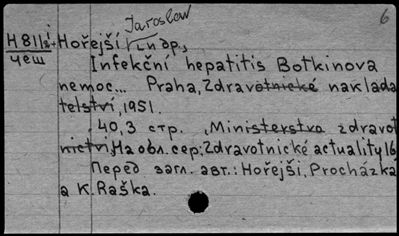 Jaroslav
6
H811si Hořejší и др.,
чеш
Infekční hepatitis Botkinova
nemoc... Praha, Zdravotnické naklada
telství, 1951.
40,3 стр. Ministerstvo zdravot
nictví, На обл. сер.: Zdravotnické actuality 16
Перед загл. авт.: Hořejší, Procházka
a K. Raška.